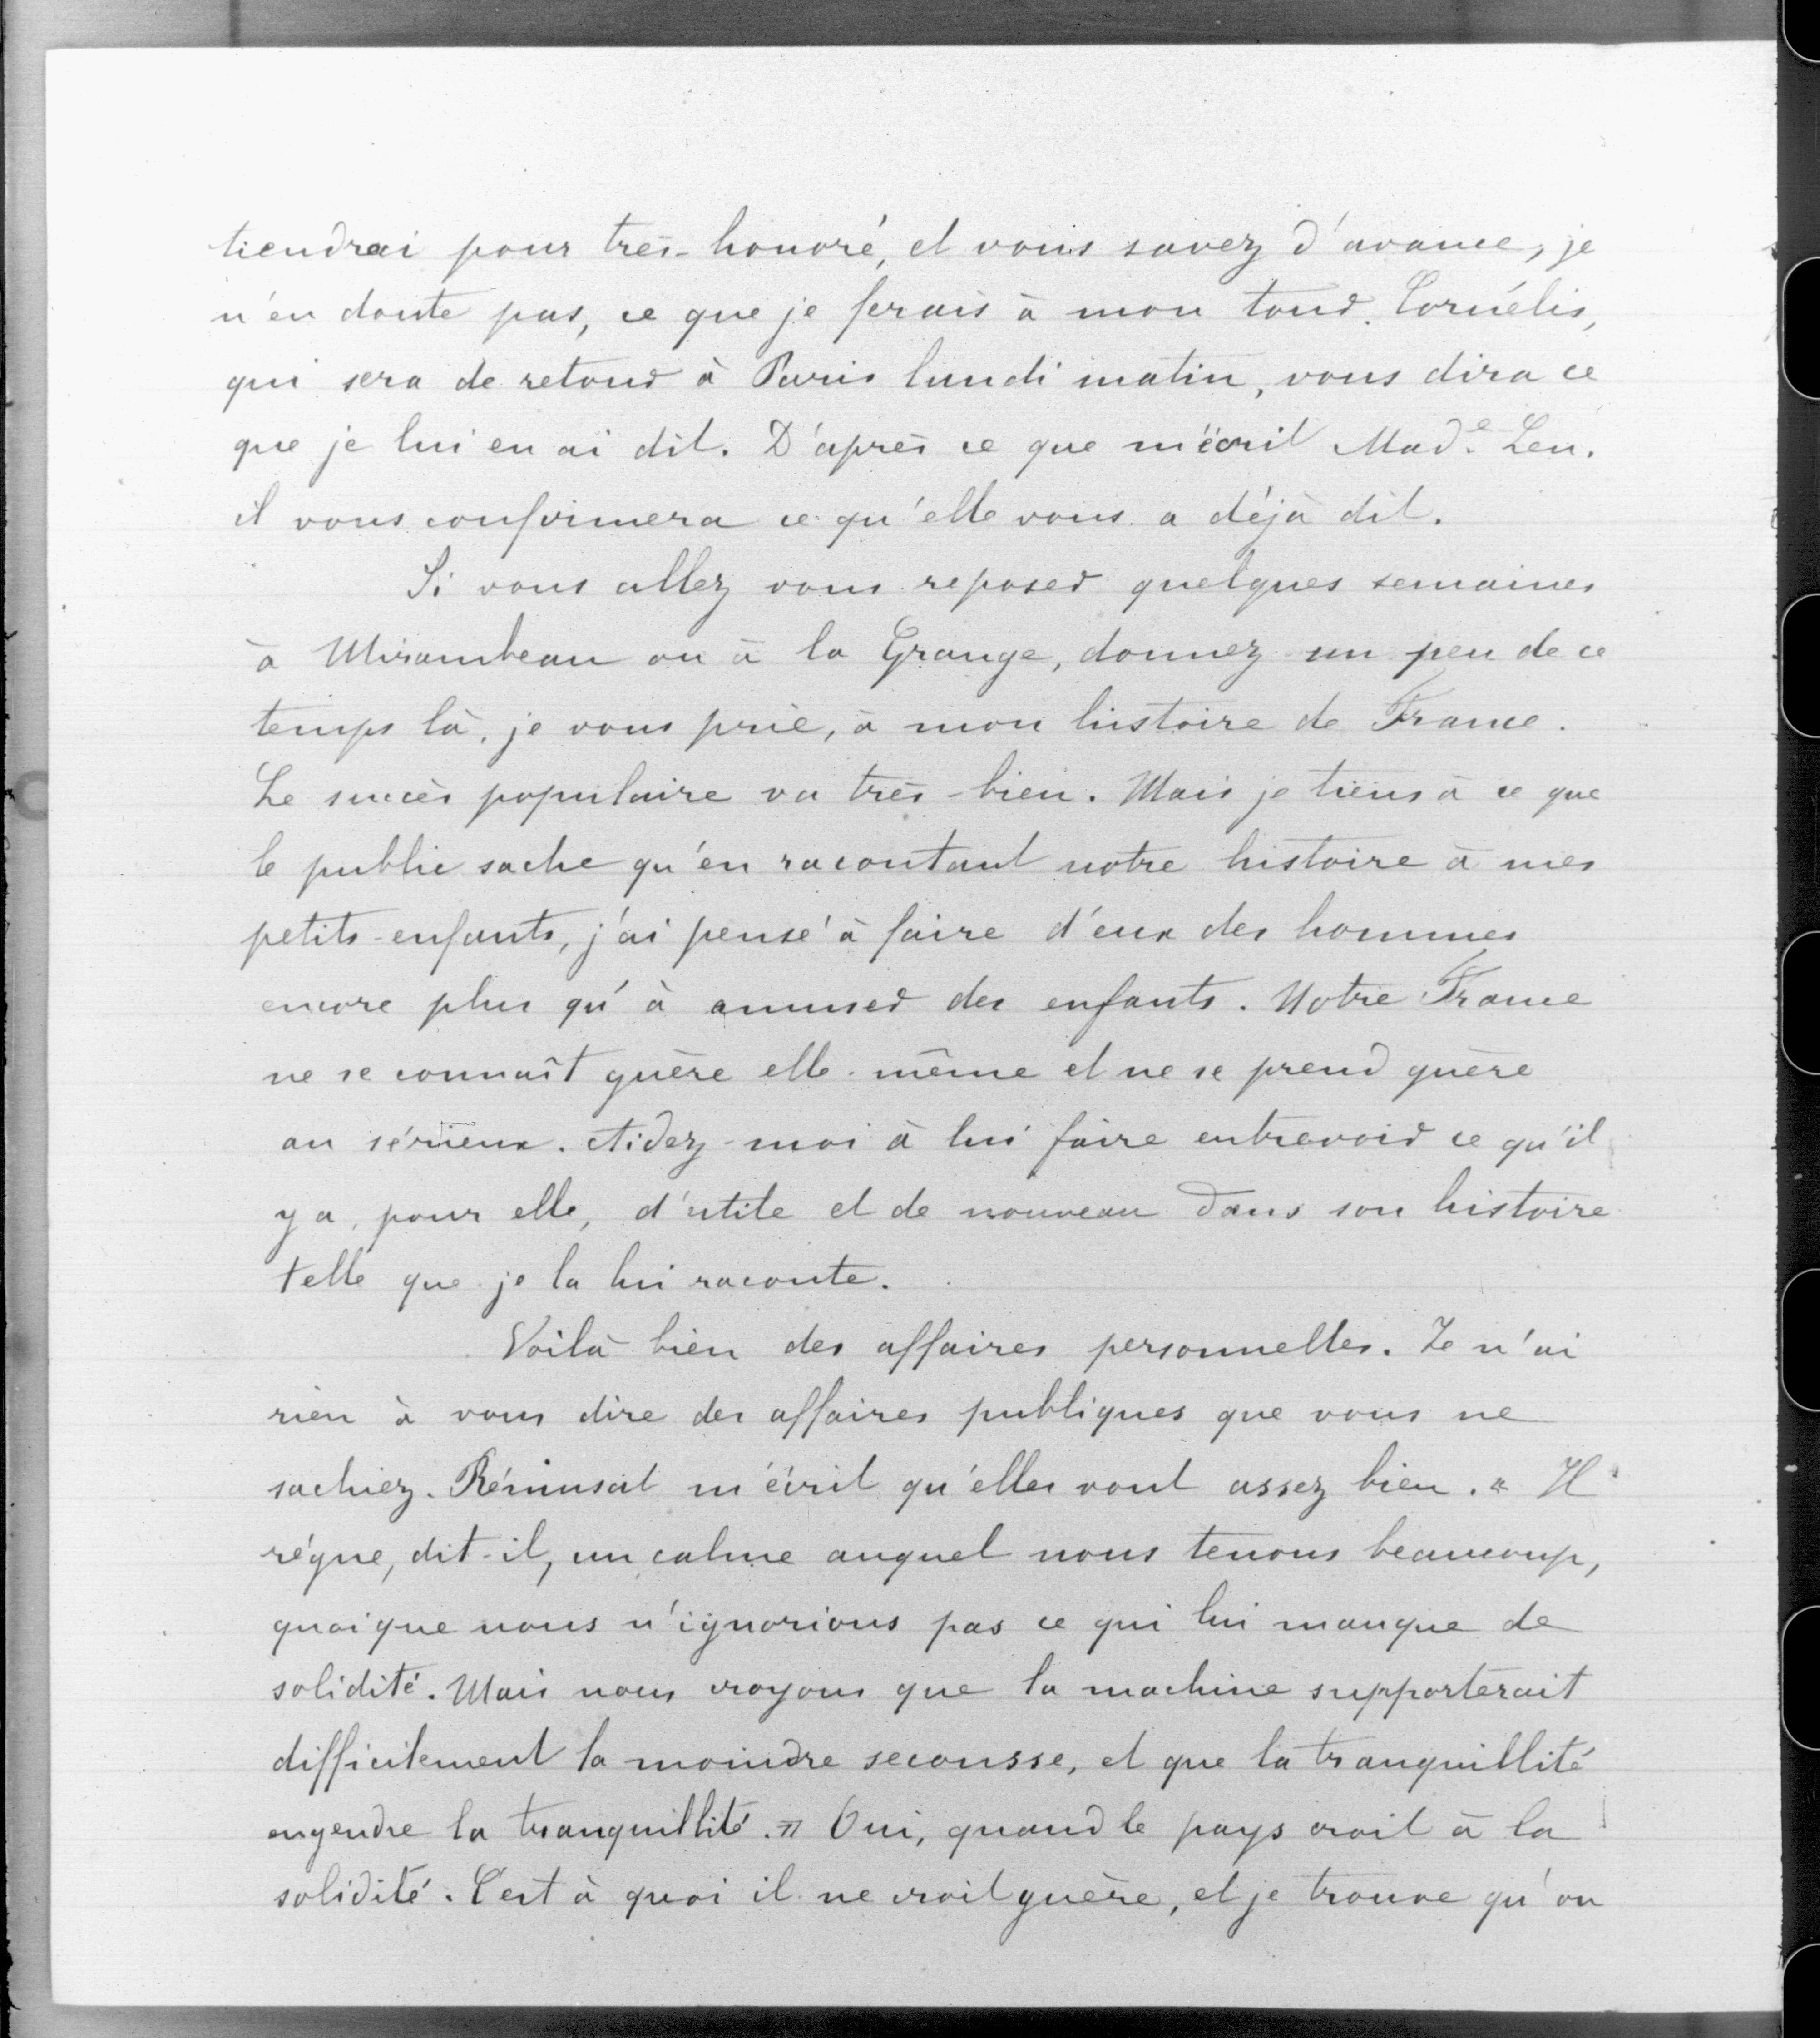 tiendrai pour très-honoré, et vous savez d'avance, je
n'en doute pas, ce que je ferais à mon tour. Cornélis,
qui sera de retour à Paris lundi matin, vous dira ce
que je lui en ai dit. D'après ce que m'écrit Mad.e Len.
il vous confirmera ce qu'elle vous a déjà dit.
Si vous allez vous reposer quelques semaines
à Mirambeau ou à la Grange, donnez un peu de ce
temps là, je vous prie, à mon histoire de France.
Le succès populaire va très-bien. Mais je tiens à ce que
le public sache qu'en racontant notre histoire à mes
petits-enfants, j'ai pensé à faire d'eux des hommes
encore plus qu'à amuser des enfants. Notre France
ne se connaît guère elle-même et ne se prend guère
au sérieux. Aidez-moi à lui faire entrevoir ce qu'il
y a, pour elle, d'utile et de nouveau dans son histoire
telle que je la lui raconte.
Voilà bien des affaires personnelles. Je n'ai
rien à vous dire des affaires publiques que vous ne
sachiez. Rémusat m'écrit qu'elles vont assez bien. « Il
règne, dit-il, un calme auquel nous tenons beaucoup,
quoique nous n'ignorions pas ce qui lui manque de
solidité. Mais nous croyons que la machine supporterait
difficilement la moindre secousse, et que la tranquillité
engendre la tranquillité. » Oui, quand le pays croit à la
solidité. C'est à quoi il ne croit guère, et je trouve qu'on